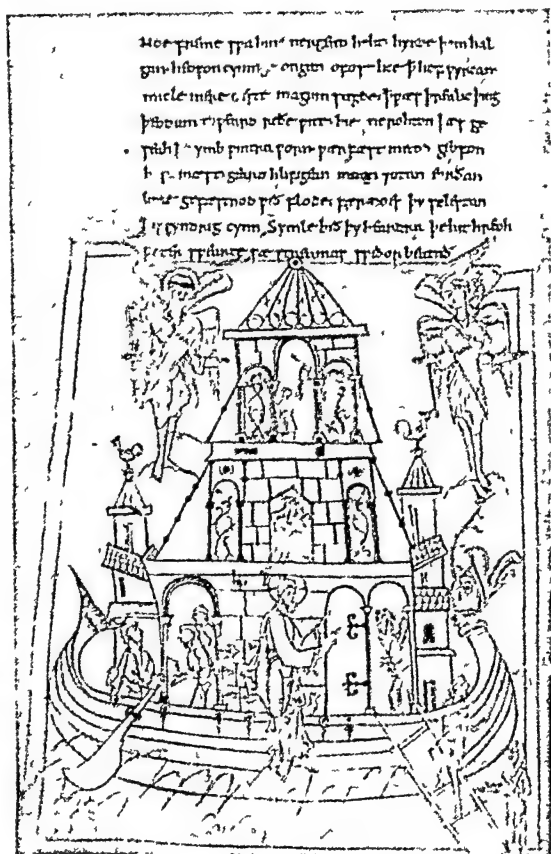 Noe freme swa hine nergend heht hyrde þam hal
gan heofoncyninge ongan ofostlice þ hof wyrcan
micle magum sægde þ wæs þrealic þing
þeodum toweard reðe wite hie ne rohton þæs ge
seah þa ymb wintra worn wærfæst metod geofon
mæst gearo hlifigean innan utan eorðan
lime gefæstnod wið flode fær noes þy selestan
þ is syndrig cynn. Symle bið þy heardra þe hit hreoh
wæter swearte sæ streamas swiðor beatað